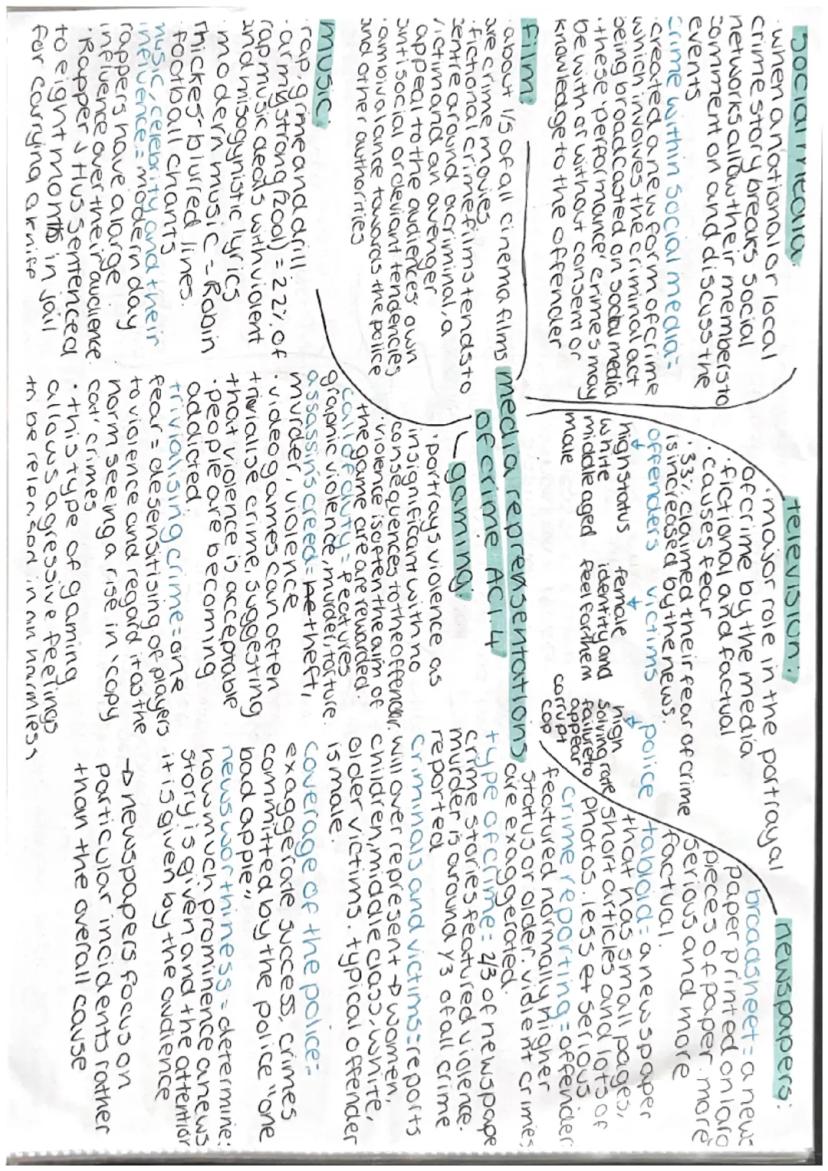 social media
• when a national or local
crime story breaks social
networks allow their members to
comment on and discuss the
events
crime within social media =
• created a new form of crime
which involves the criminal act
being broadcasted on social media
• these 'performance' crimes may
be with or without consent or
knowledge to the offender
film
• about 1/5 of all cinema films
are crime movies
• fictional crime films tends to
centre around a criminal, a
victim and an avenger
• appeal to the audiences own
antisocial or deviant tendencies
• ambivalance towards the police
and other authorities
music
• rap, grime and drill
• armstrong (2001) = 22% of
rap music deals with violent
and misogynistic lyrics
• modern music = Robin
Thicke - blurred lines
• football chants
music, celebrity and their
influence = modern day
rappers have a large
influence over their audience
• Rapper J Hus sentenced
to eight months in jail
for carrying a knife
media reprensentations
of crime AC1.4
television:
• major role in the portrayal
of crime by the media
• fictional and factual
• causes fear
• 33% claimed their fear of crime
is increased by the news
offenders
↓
high status
white
middle aged
male
victims
↓
female
identity and
feel for them
police
↓
high
solving rate
failure to
appear
corrupt
cop
gaming
• portrays violence as
insignificant with no
consequences to the offender.
• violence is often the aim of
the game are are rewarded
call of duty = features
graphic violence, murder, torture
assassins creed = theft,
murder, violence
• video games can often
trivialise crime, suggesting
that violence is acceptable
• people are becoming
addicted
trivialising crime = one
fear = desensitising of players
to violence and regard it as the
norm seeing a rise in 'copy
cat' crimes
• this type of gaming
allows agressive feelings
to be released in an harmless
newspapers:
broadsheet = a news
paper printed on larg
pieces of paper. more
serious and more
factual.
tabloid = a newspaper
that has small pages,
short articles and lots of
photos. less serious
crime reporting = offender
featured normally higher
status or older. violent crimes
are exaggerated.
type of crime = 2/3 of newspape
crime stories featured violence.
murder is around 1/3 of all crime
reported
criminals and victims = reports
will over represent → women,
children, middle class, white,
older victims. typical offender
is male.
coverage of the police =
exaggerate success, crimes
committed by the police "one
bad apple"
newsworthiness = determine:
how much prominence a news
story is given and the attention
it is given by the audience
→ newspapers focus on
particular incidents rather
than the overall cause